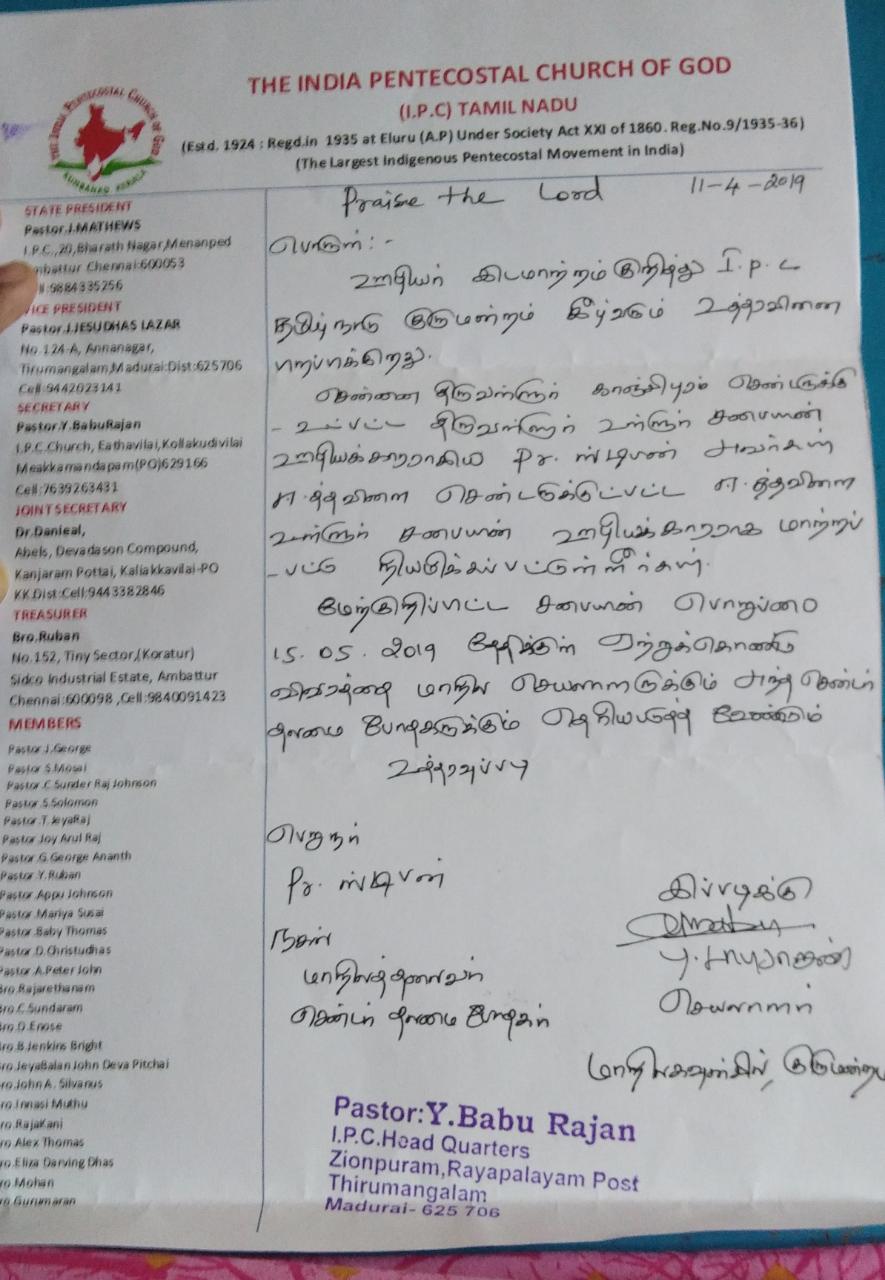 THE INDIA PENTECOSTAL CHURCH OF GOD
(I.P.C) TAMIL NADU
(Estd. 1924 : Regd.in 1935 at Eluru (A.P) Under Society Act XXI of 1860. Reg.No.9/1935-36)
(The Largest Indigenous Pentecostal Movement in India)
THE INDIA PENTECOSTAL CHURCH OF GOD
KUMBANAD KERALA
STATE PRESIDENT
Pastor.J.MATHEWS
I.P.C.,20,Bharath Nagar,Menanped
mbattur Chennai:600053
:9884335256
VICE PRESIDENT
Pastor.J.JESUDHAS LAZAR
No.124-A, Annanagar,
Tirumangalam,Madurai:Dist:625706
Cell:9442023141
SECRETARY
Pastor.Y.BabuRajan
I.P.C.Church, Eathavilai,Kollakudivilai
Meakkamandapam(PO)629166
Cell:7639263431
JOINT SECRETARY
Dr.Danieal,
Abels, Devadason Compound,
Kanjaram Pottai, Kaliakkavilai-PO
KK.Dist:Cell:9443382846
TREASURER
Bro.Ruban
No.152, Tiny Sector,(Koratur)
Sidco Industrial Estate, Ambattur
Chennai:600098 ,Cell:9840091423
MEMBERS
Pastor.J.George
Pastor S.Mosai
Pastor.C.Sunder Raj Johnson
Pastor.S.Solomon
Pastor.T.JeyaRaj
Pastor Joy Arul Raj
Pastor.G.George Ananth
Pastor.Y.Ruban
Pastor.Appu Johnson
Pastor.Mariya Susai
Pastor.Baby Thomas
Pastor.D.Christudhas
Pastor.A.Peter John
Bro.Rajarethanam
ro.C.Sundaram
ro.D.Enose
ro.B.Jenkins Bright
ro.JeyaBalan John Deva Pitchai
ro.John A. Silvanus
ro.Innasi Muthu
ro.RajaKani
ro.Alex Thomas
ro.Eliza Darving Dhas
ro Mohan
ro Gurumaran
Praise the Lord 11-4-2019
பொருள்:-
ஊழியர் இடமாற்றம் குறித்து I.P.C
தமிழ்நாடு குருமன்றம் கீழ்வரும் உத்தரவினை
பிறப்பிக்கிறது.
சென்னை திருவள்ளூர் காஞ்சிபுரம் சென்டருக்கு
-உட்பட்ட திருவள்ளூர் உள்ளூர் சபையின்
ஊழியக்காரராகிய Pr. ஸ்டீபன் அவர்கள்
ஈத்தவிளை சென்டருக்குட்பட்ட ஈத்தவிளை
உள்ளூர் சபையின் ஊழியக்காரராக மாற்றப்
-பட்டு நியமிக்கப்பட்டுள்ளீர்கள்.
மேற்குறிப்பிட்ட சபையின் பொறுப்பை
15.05.2019 தேதிக்குள் ஏற்றுக்கொண்டு
விவரத்தை மாநில செயலாளருக்கும் அந்த சென்டர்
தலைமை போதகருக்கும் தெரியபடுத்த வேண்டும்
உத்தரவுப்படி
பெறுநர்
Pr. ஸ்டீபன்
நகல்
மாநிலத்தலைவர்
சென்டர் தலைமை போதகர்
இப்படிக்கு
Y. பாபுராஜன்
செயலாளர்
மாநில கவுன்சில், குருமன்றம்
Pastor:Y.Babu Rajan
I.P.C.Head Quarters
Zionpuram,Rayapalayam Post
Thirumangalam
Madurai- 625 706